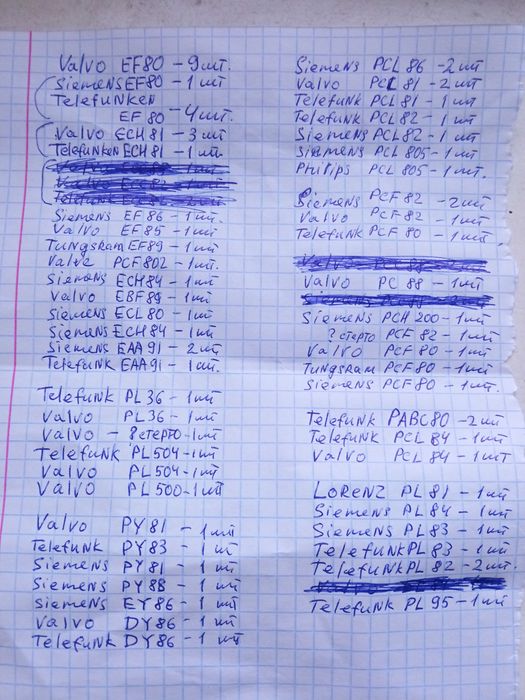 Valvo EF80 - 9 шт.
Siemens EF80 - 1 шт
Telefunken
EF 80 - 4 шт.
Valvo ECH 81 - 3 шт
Telefunken ECH 81 - 1 шт
Siemens EF 86 - 1 шт.
Valvo EF 85 - 1 шт.
Tungsram EF89 - 1 шт.
Valve PCF802 - 1 шт.
Siemens ECH 84 - 1 шт
Valvo EBF 89 - 1 шт
Siemens ECL 80 - 1 шт
Siemens ECH 84 - 1 шт
Siemens EAA 91 - 2 шт
Telefunk EAA 91 - 1 шт.
Telefunk PL 36 - 1 шт
Valvo PL 36 - 1 шт
Valvo - ? стерто - 1 шт
Telefunk PL 504 - 1 шт
Valvo PL 504 - 1 шт
Valvo PL 500 - 1 шт
Valvo PY 81 - 1 шт
Telefunk PY 83 - 1 шт
Siemens PY 81 - 1 шт
Siemens PY 88 - 1 шт
Siemens EY 86 - 1 шт
Valvo DY 86 - 1 шт
Telefunk DY 86 - 1 шт
Siemens PCL 86 - 2 шт
Valvo PCL 81 - 2 шт
Telefunk PCL 81 - 1 шт
Telefunk PCL 82 - 1 шт
Siemens PCL 82 - 1 шт
Siemens PCL 805 - 1 шт
Philips PCL 805 - 1 шт.
Siemens PCF 82 - 2 шт
Valvo PCF 82 - 1 шт
Telefunk PCF 80 - 1 шт
Valvo PC 88 - 1 шт
Siemens PCH 200 - 1 шт
? стерто PCF 82 - 1 шт
Valvo PCF 80 - 1 шт
Tungsram PCF 80 - 1 шт
Siemens PCF 80 - 1 шт.
Telefunk PABC80 - 2 шт
Telefunk PCL 84 - 1 шт
Valvo PCL 84 - 1 шт
Lorenz PL 81 - 1 шт
Siemens PL 84 - 1 шт
Siemens PL 83 - 1 шт
Telefunk PL 83 - 1 шт
Telefunk PL 82 - 2 шт.
Telefunk PL 95 - 1 шт